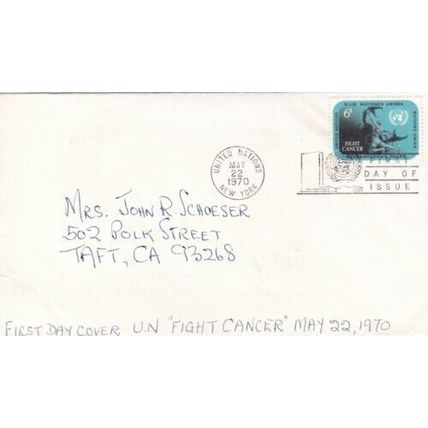 6¢
NATIONS UNIES
FIGHT
CANCER
UNITED NATIONS
MAY
22
1970
NEW YORK
FIRST
DAY OF
ISSUE
MRS. JOHN R. SCHOESER
502 POLK STREET
TAFT, CA 93268
FIRST DAY COVER U.N "FIGHT CANCER" MAY 22, 1970